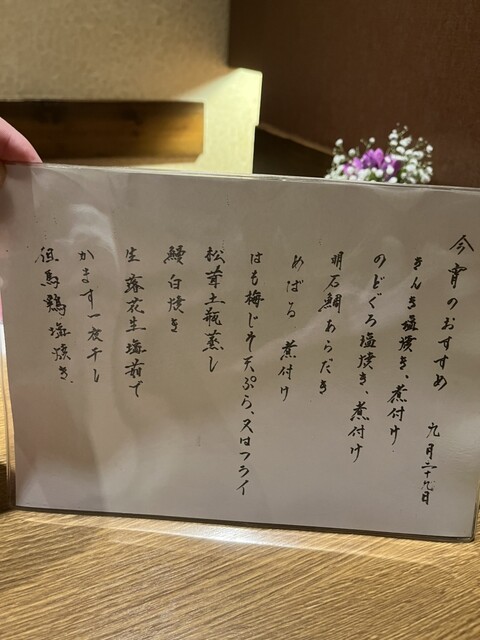 今宵のおすすめ 九月二十九日
きんき塩焼き、煮付け
のどぐろ塩焼き、煮付け
明石鯛あらだき
めばる 煮付け
はも梅じそ天ぷら、又はフライ
松茸土瓶蒸し
鰻白焼き
生落花生塩茹で
かます一夜干し
但馬鶏塩焼き